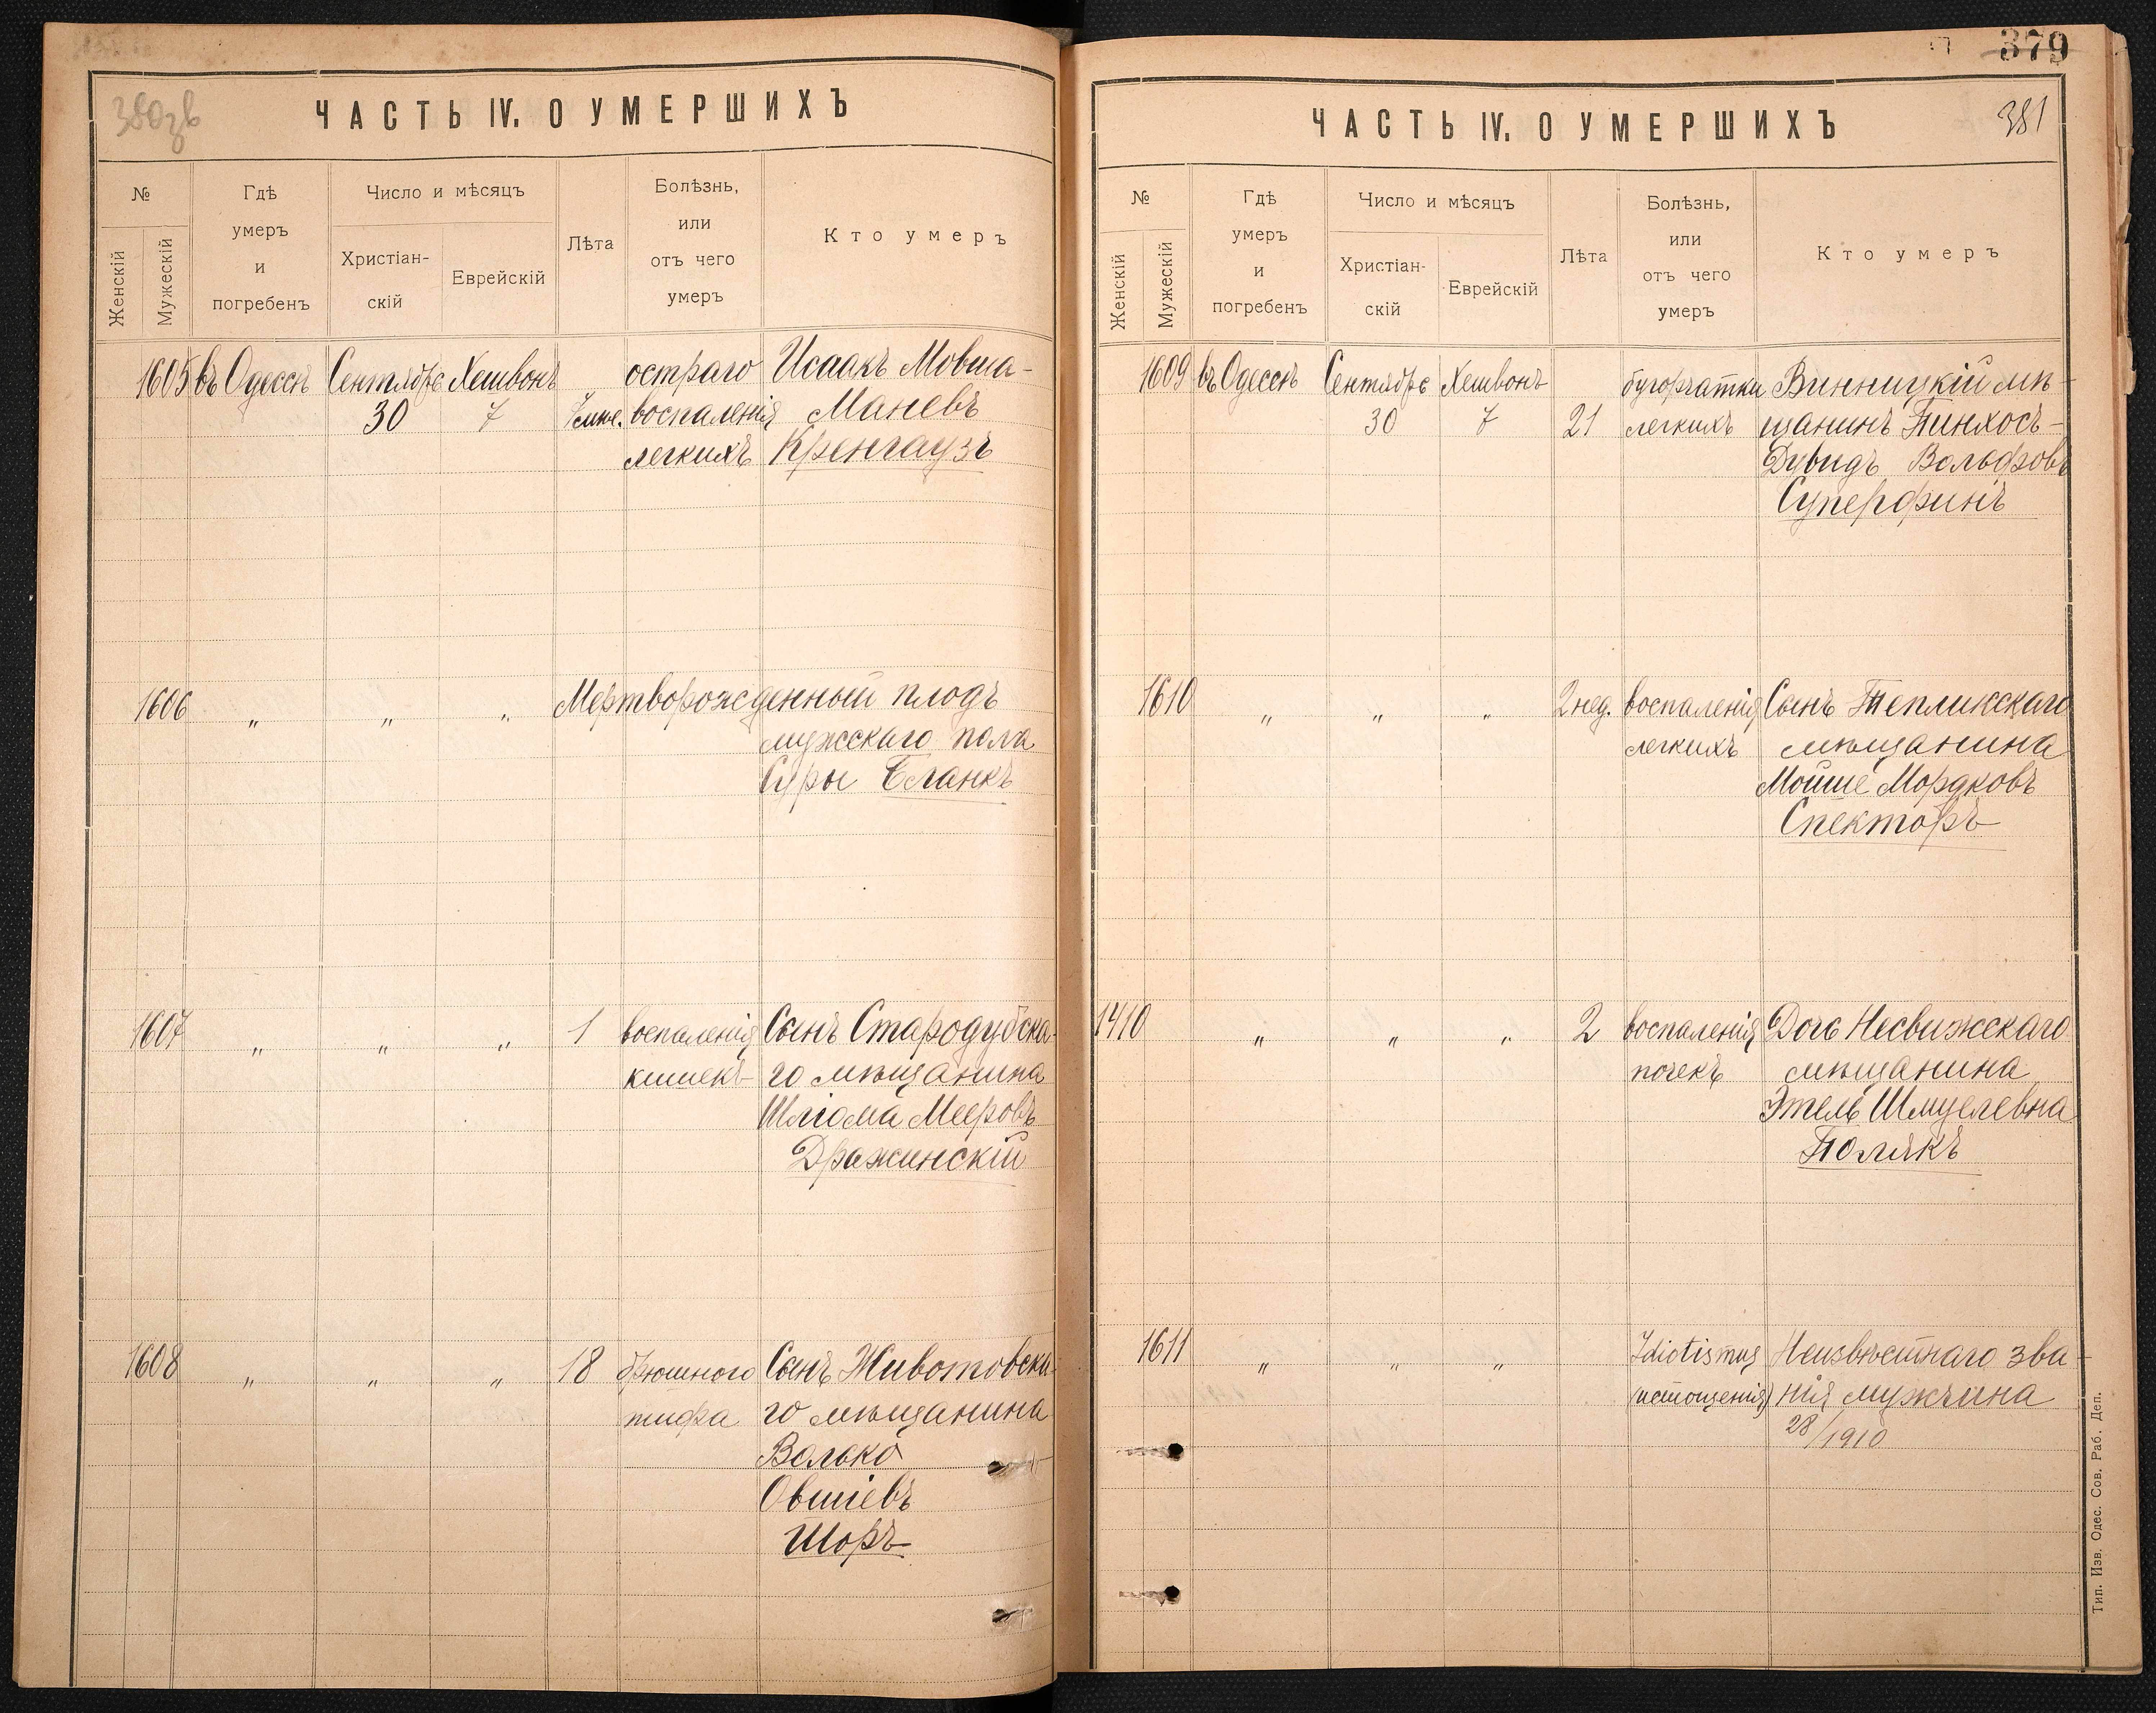 380зв
ЧАСТЬ IV. О УМЕРШИХЪ
№
Женскій
Мужескій
Гдѣ
умеръ
и
погребенъ
Число и мѣсяцъ
Христіан-
скій
Еврейскій
Лѣта
Болѣзнь,
или
отъ чего
умеръ
Кто умеръ
1605 въ Одессѣ Сентябрь Хешвонъ остраго Исаакъ Мовша-
30 7 7 мѣс. воспаленія Маневъ
легкихъ Кренгаузъ
1606 " " " Мертворожденный плодъ
мужскаго пола
Суры Бланкъ
1607 " " " 1 воспаленія Сынъ Стародубска-
кишекъ го мѣщанина
Шліома Мееровъ
Дражинскій
1608 " " " 18 брюшного Сынъ Животовска-
тифа го мѣщанина
Волько
Овшіевъ
Шоръ
379
381
ЧАСТЬ IV. О УМЕРШИХЪ
№
Женскій
Мужескій
Гдѣ
умеръ
и
погребенъ
Число и мѣсяцъ
Христіан-
скій
Еврейскій
Лѣта
Болѣзнь,
или
отъ чего
умеръ
Кто умеръ
1609 въ Одессѣ Сентябрь Хешвонъ бугорчатки Винницкій мѣ-
30 7 21 легкихъ щанинъ Пинхосъ-
Дувидъ Вольфовъ
Суперфинъ
1610 " " " 2 нед. воспаленія Сынъ Тепликскаго
легкихъ мѣщанина
Мойше Мордковъ
Спекторъ
1410 " " " 2 воспаленія Дочь Несвижскаго
почекъ мѣщанина
Этель Шмулевна
Полякъ
1611 " " " Idiotismus Неизвѣстнаго зва-
(истощенія) нія мужчина
28/1910
Тип. Изв. Одес. Сов. Раб. Деп.